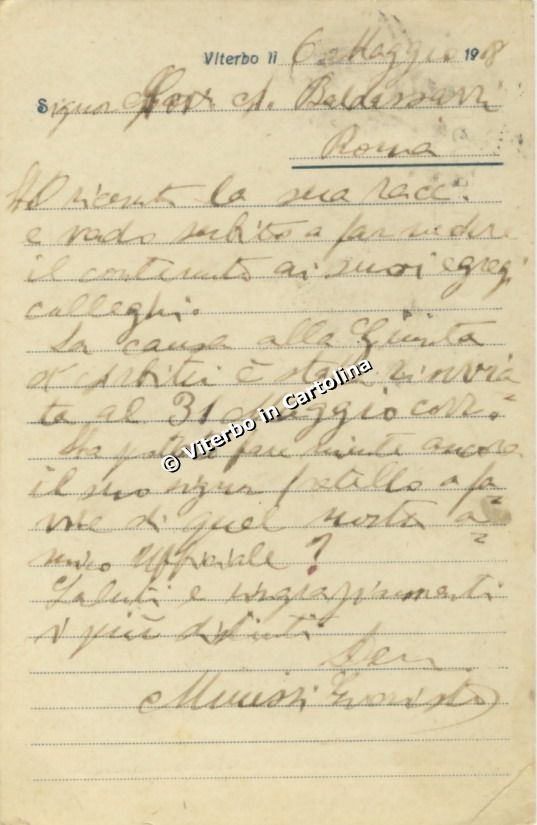 Viterbo li 6 Maggio 1908
Signor A. Baldassarri
Roma
Ho ricevuto la sua racc.
e vado subito a far vedere
il contenuto ai suoi egregi
colleghi.
La causa alla Giunta
d'arbitri è stata rinvia
ta al 31 Maggio corr.
Ha potuto fare niente ancora
il suo signor fratello a fa
vore di quel nostro a=
mico ufficiale?
Saluti e ringraziamenti
i più distinti
© Viterbo in Cartolina